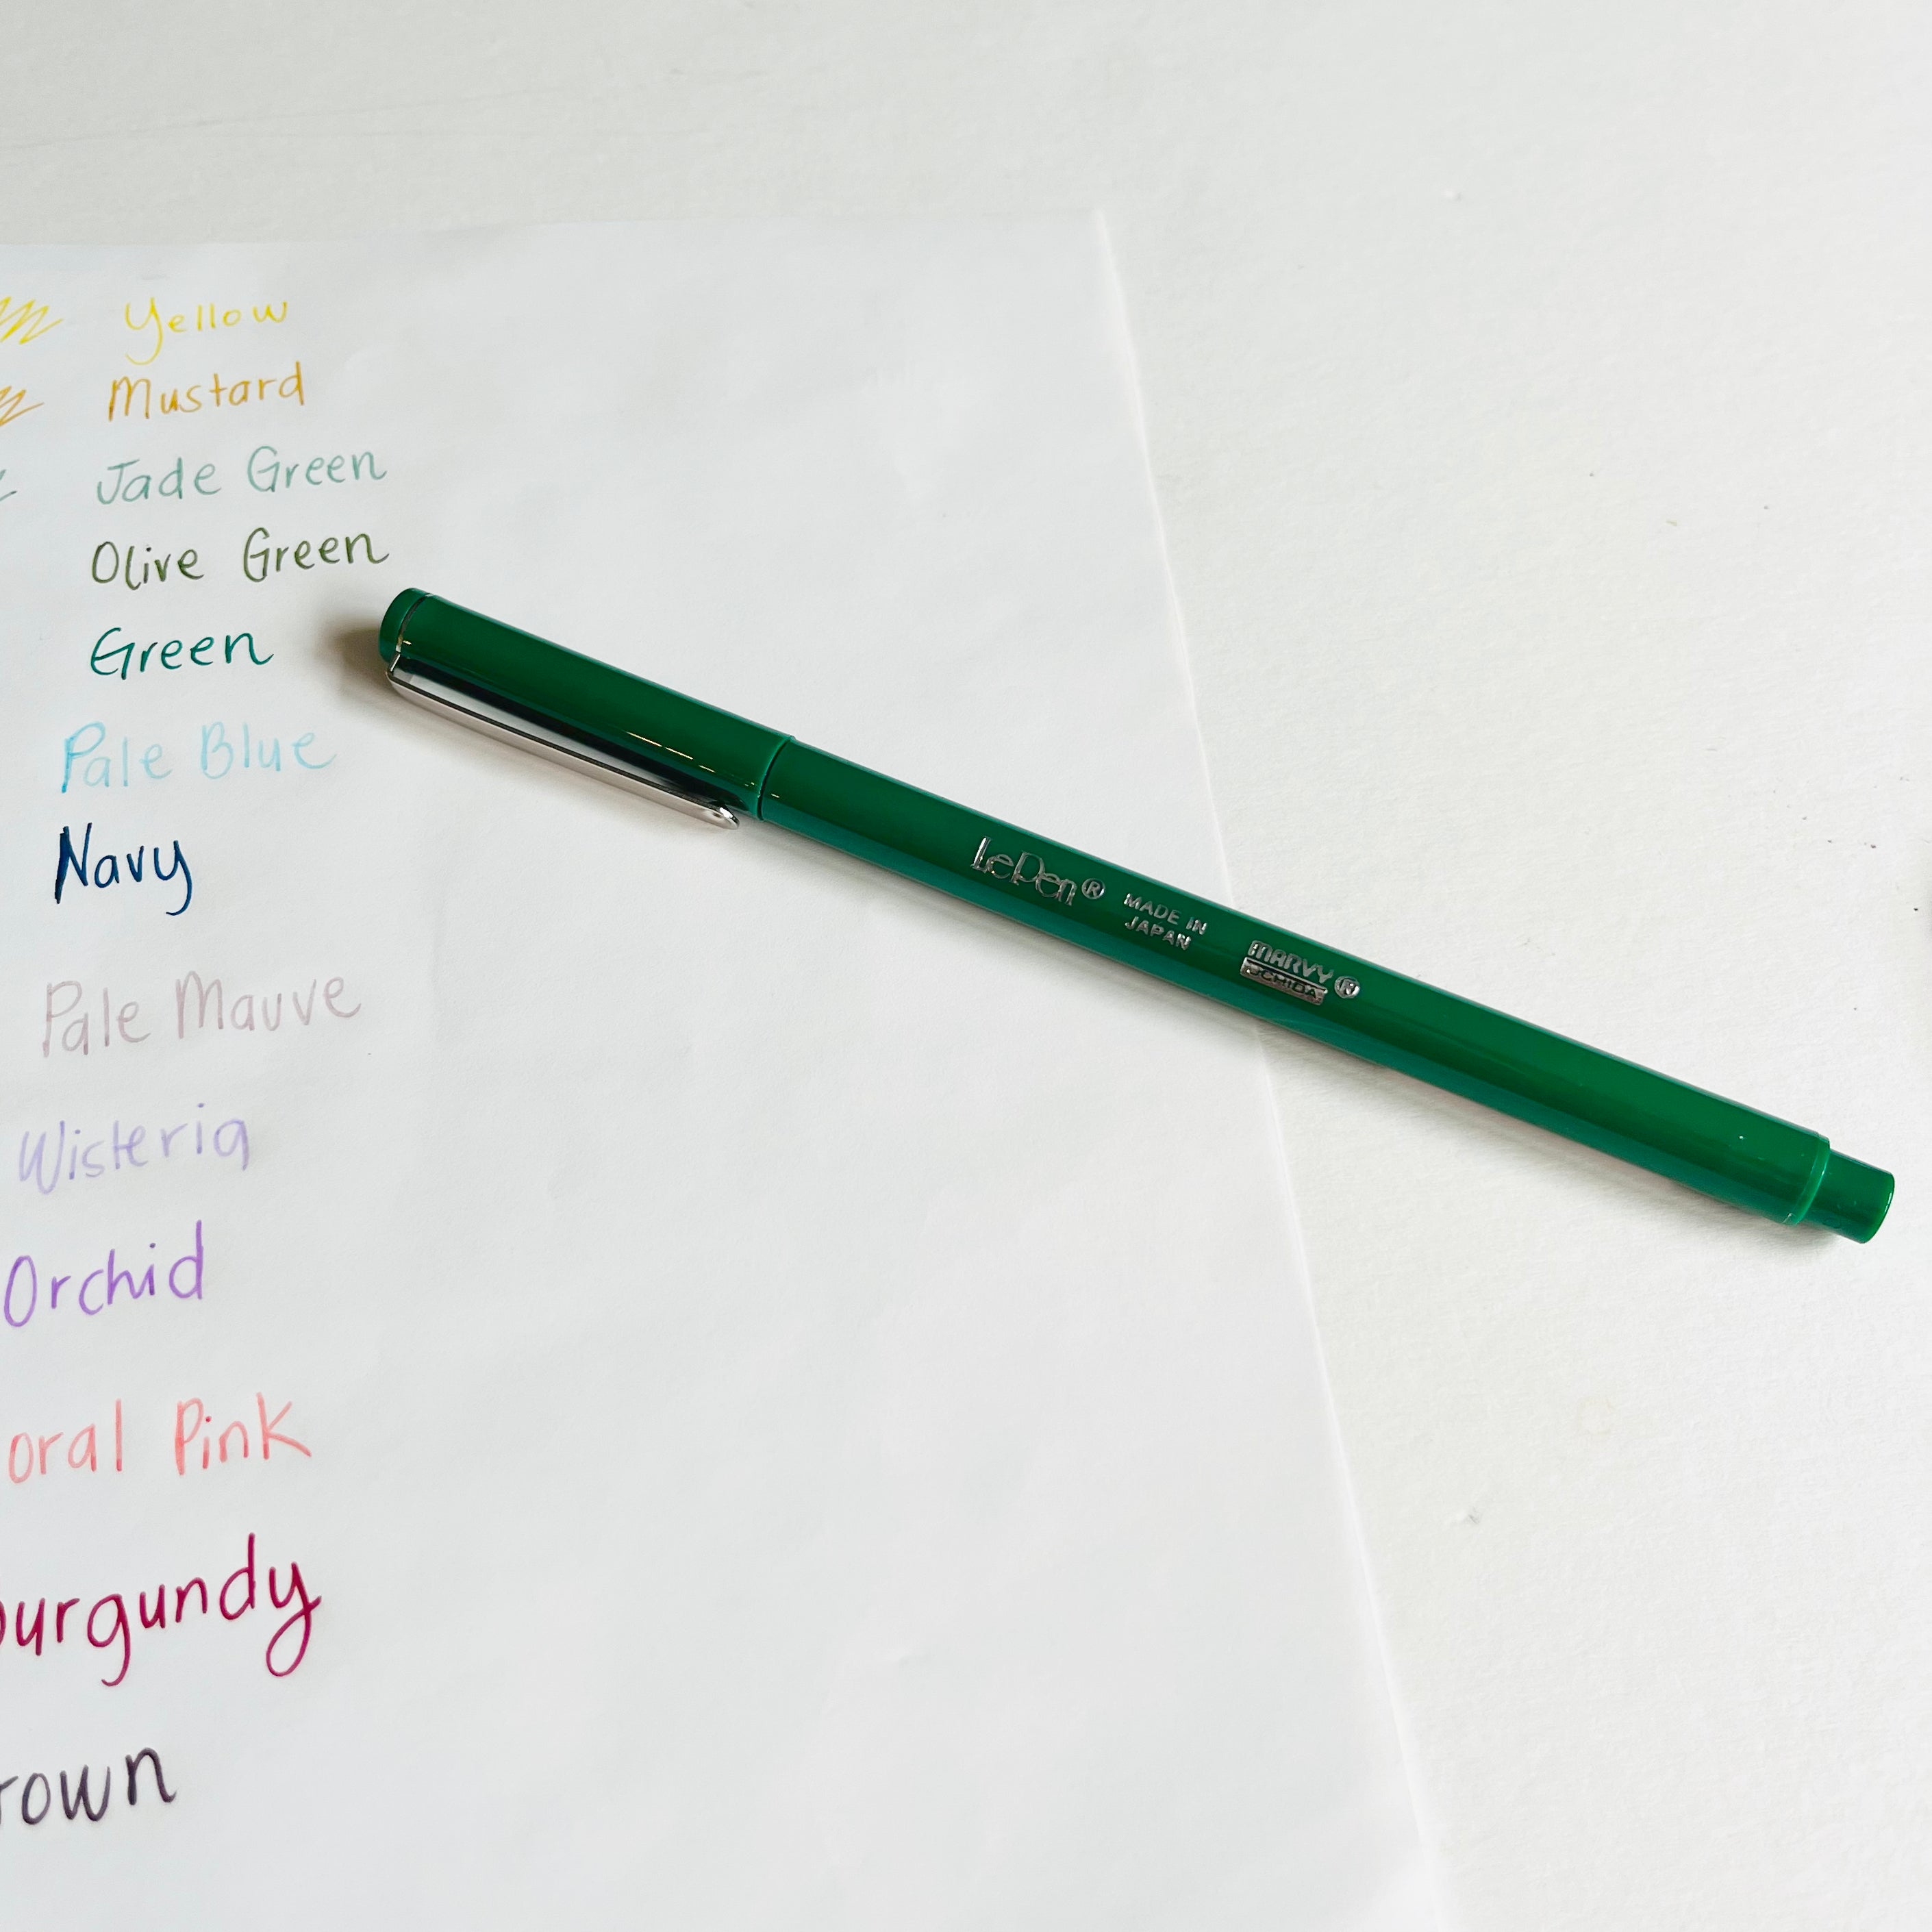 Yellow
Mustard
Jade Green
Olive Green
Green
Pale Blue
Navy
LePen®
MADE IN
JAPAN
MARVY®
UCHIDA
Pale Mauve
Wisteria
Orchid
oral Pink
urgundy
rown